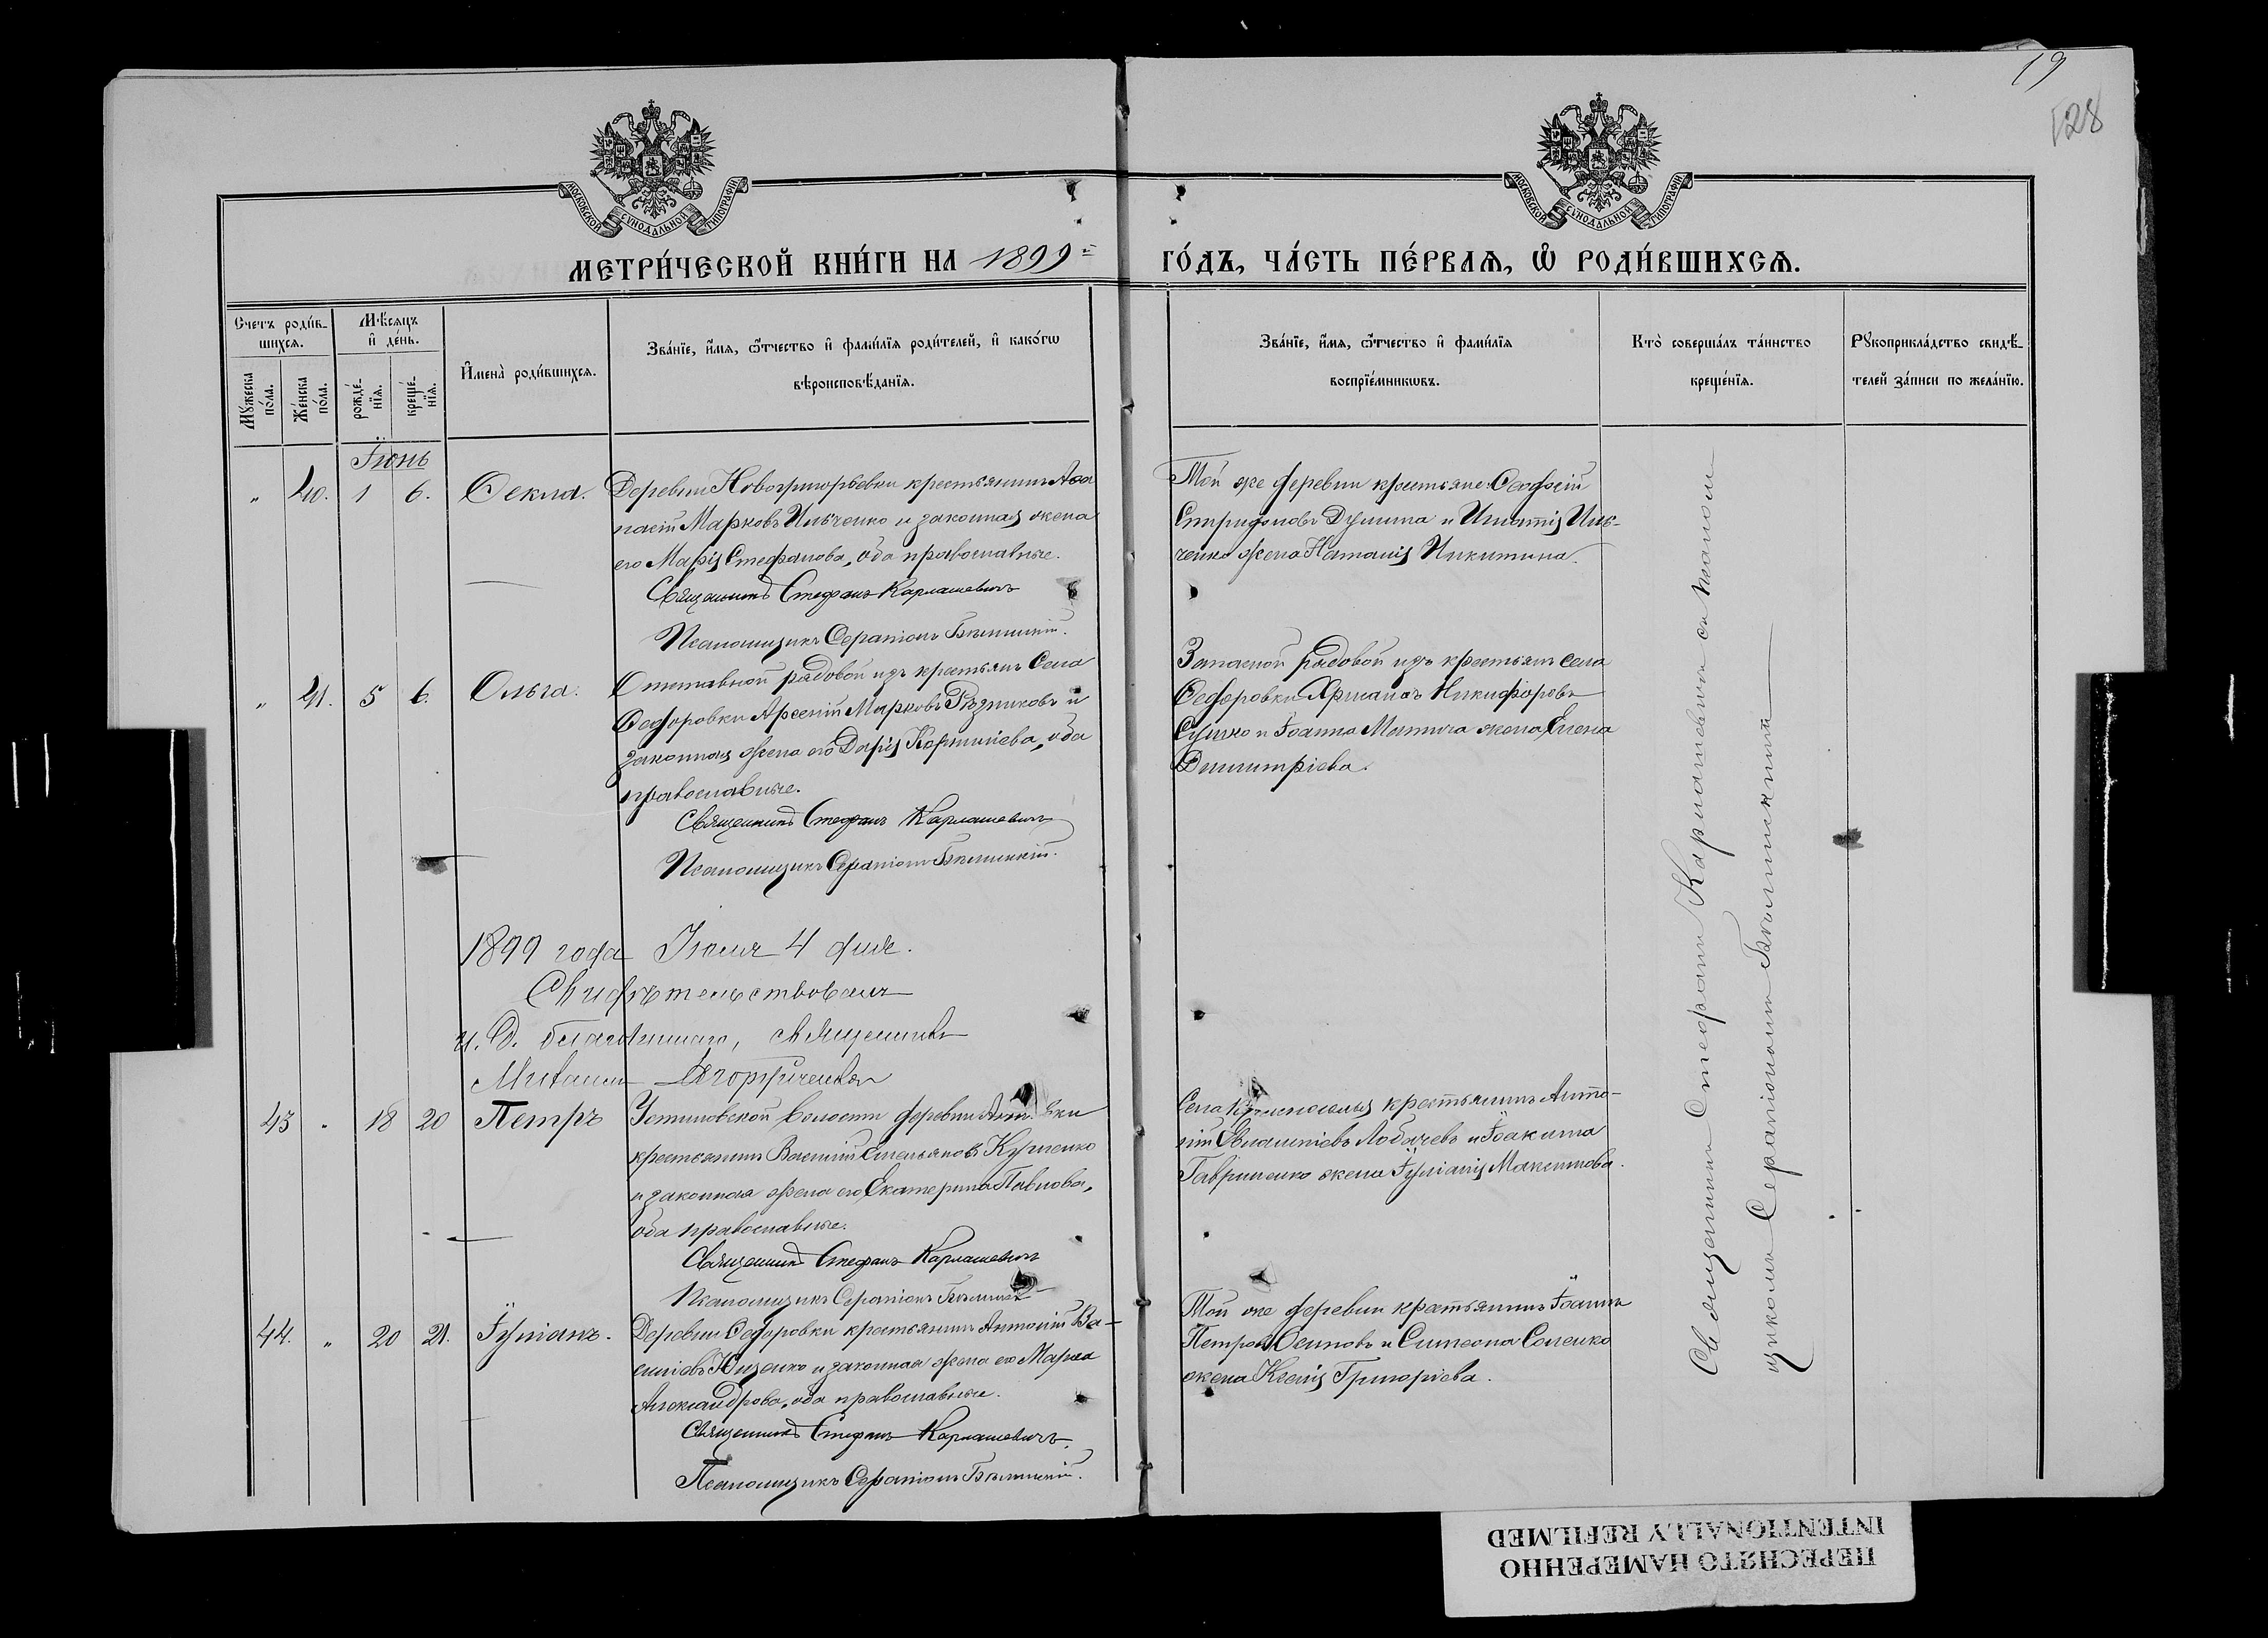 19
128
МОСКОВСКОЙ СѴНОДАЛЬНОЙ ТИПОГРАФІИ
МОСКОВСКОЙ СѴНОДАЛЬНОЙ ТИПОГРАФІИ
МЕТРИ́ЧЕСКОЙ КНИ́ГИ НА 1899й ГО́ДЪ, ЧА́СТЬ ПЕ́РВАѦ, Ѡ҆ РОДИ́ВШИХСѦ.
Счетъ роди́в-
шихсѧ.
Мѣ́сѧцъ
и҆ де́нь.
Мꙋ́жеска
по́ла.
Же́нска
по́ла.
рожде́-
нїѧ.
креще́-
нїѧ.
И҆мена̀ роди́вшихсѧ.
Зва́нїе, и҆́мѧ, ѻ҆́тчество и҆ фамѝлїѧ роди́телей, и҆ како́гѡ
вѣроисповѣ́данїѧ.
Зва́нїе, и҆́мѧ, ѻ҆́тчество и҆ фами́лїѧ
воспрїе́мникѡвъ.
Кто̀ соверша́лъ та́инство
креще́нїѧ.
Рꙋкоприкла́дство свидѣ́-
телей за́писи по жела́нїю.
Іюнь
" 40. 1 6. Ѳекла. Деревни Новогригорьевки крестьянинъ Аѳа
насій Марковъ Ильченко и законная жена
его Марія Стефанова, оба православные.
Священникъ Стефанъ Карлашевичъ
Псаломщикъ Серапіонъ Бѣлинскій.
Той же деревни крестьяне:
Спиридоновъ и Игнатія Иль-
ченко жена Наталія Никитина.
" 41. 5 6. Ольга. Отставной рядовой изъ крестьянъ Села
Ѳедоровки Арсеній Марковъ Рѣзниковъ и
законная жена его Дарія Корниліева, оба
православные.
Священникъ Стефанъ Карлашевичъ
Псаломщикъ Серапіонъ Бѣлинскій.
Запасной рядовой изъ крестьянъ села
Ѳедоровки Никифоровъ
и Іоанна жена Елена
Димитріева.
1899 года Іюля 4 дня.
Свидѣтельствовалъ
и. д. благочиннаго, священникъ
43 " 18 20 Петръ Устиновской волости деревни
крестьянинъ Василій Емельяновъ Куценко
и законная жена его Екатерина Павлова,
оба православные.
Священникъ Стефанъ Карлашевичъ
Псаломщикъ Серапіонъ Бѣлинскій
Села крестьянинъ Анто-
ній Лобачевъ и Іоакима
Гавриленко жена Іуліанія Максимова.
44. " 20 21. Іуліанъ. Деревни Ѳедоровки крестьянинъ Антоній Ва-
силіевъ и законная жена его Марѳа
Александрова, оба православные.
Священникъ Стефанъ Карлашевичъ.
Псаломщикъ Серапіонъ Бѣлинскій.
Той же деревни крестьянинъ Іоаннъ
Петровъ Осиповъ и Симеона
жена Ксенія Григоріева.
Священникъ Стефанъ Карлашевичъ съ псалом-
щикомъ Серапіономъ Бѣлинскимъ
ПЕРЕСНЯТО НАМЕРЕННО
INTENTIONALLY REFILMED